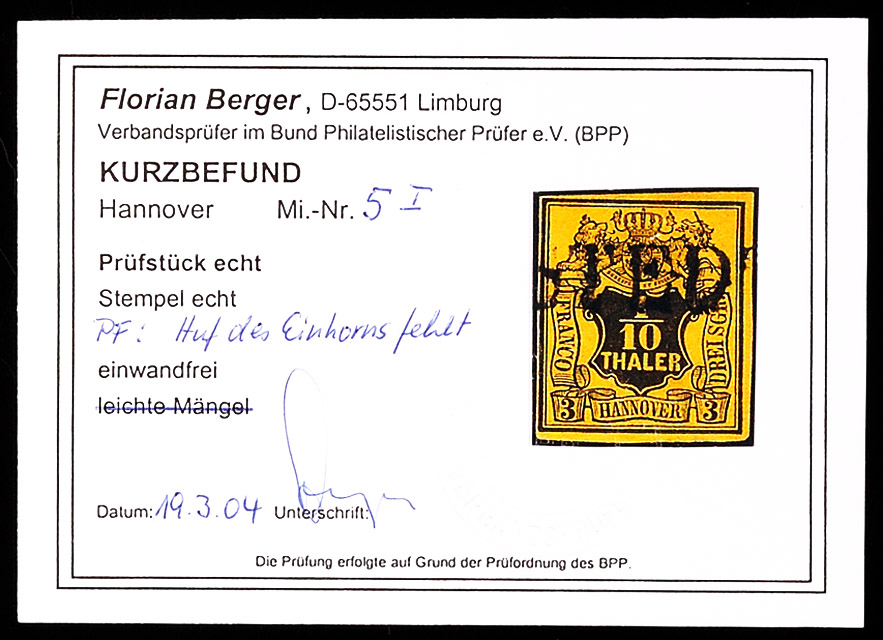 Florian Berger, D-65551 Limburg
Verbandsprüfer im Bund Philatelistischer Prüfer e.V. (BPP)
KURZBEFUND
Hannover Mi.-Nr. 5 I
Prüfstück echt
Stempel echt
PF: Huf des Einhorns fehlt
einwandfrei
leichte Mängel
Datum: 19.3.04 Unterschrift:
Die Prüfung erfolgte auf Grund der Prüfordnung des BPP.
1
10
THALER
FRANCO
3 HANNOVER 3